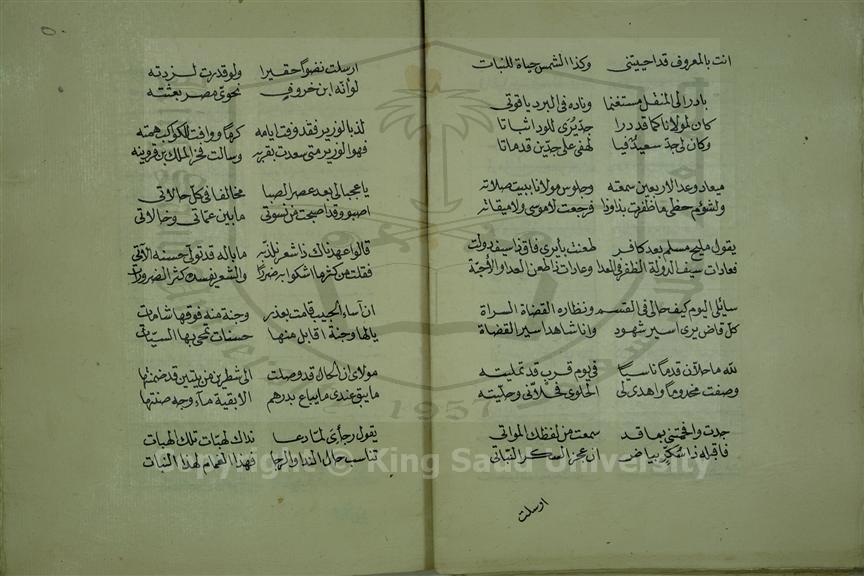 انت بالمعروف قد احييتنى وكذا الشمس حياة للنبات
بادر الى المنفل مستغنما وناده فى البرد ياقوتى
كان لمولانا كما قد درا جدّ يُرى للودّ اثباتا
وكان لى جدّ سعيد فيا لهفى على جدّين قد ماتا
ميعاد وعد الاربعين سمعته وجلوس مولانا ببيت صلاته
ولشؤم حظى ما ظفرت بذا وذا فرجعت لا موسى ولا ميقاته
يقول مليح مسلم بعد كافر طعنت بايرى فاق ذا سيف دولت
فعادات سيف الدولة الظفر فى العدا وعادات ذا طعن العدا والاحبّة
سائلى اليوم كيف حالى فى القسم ونظاره القضاة السراة
كل قاض يرى اسير شهود وانا شاهد اسير القضاة
لله ما حلان قدما ناسبا فى يوم قرب قد تمليته
وصفت مخدوما واهدى لى الحلوى فحلانى وحليته
جدت وافحمتنى بما قد سمعت من لفظك المواتى
فاقبله ذا سُكر بياض ان عجز السكر النباتى
ارسلت
ارسلت نضوا حقيرا ولو قدرت لزدته
لو انه ابن خروف نحوى مصر بعثته
لذ بالوزير فقد وفت ايامه كرما ووافت للكواكب همته
فهو الوزير متى سعدت بقربه وسالت فخر الملك بن قروينه
يا عجبا لى بعد عصر الصبا مخالفا فى كل حالاتى
اصبو وقد اصبحت من نسوتى ما بين عماتى وخالاتى
قالوا عهدناك ذا شعر نلذ به ما باله قد تولى حسنه الآتى
فقلت من كثر ما اشكوا به ضررا والشعر يفسد كثر الضرورات
ان اساء الحبيب قامت بعذر وجنة منه فوقها شامات
يا لها وجنة اقابل منها حسنات تمحى بها السيّئات
مولاى ان الحال قد وصلت الى شطرين من بيتين قد ضمنتها
ما يبق عندى ما يباع بدرهم الا بقية ماء وجه صنتها
يقول رجاءى لما دعا نداك لهبّات تلك الهبات
تناسب حال الندا والرجا فهذا الغمام لهذا النبات
Copyright © King Saud University
1957